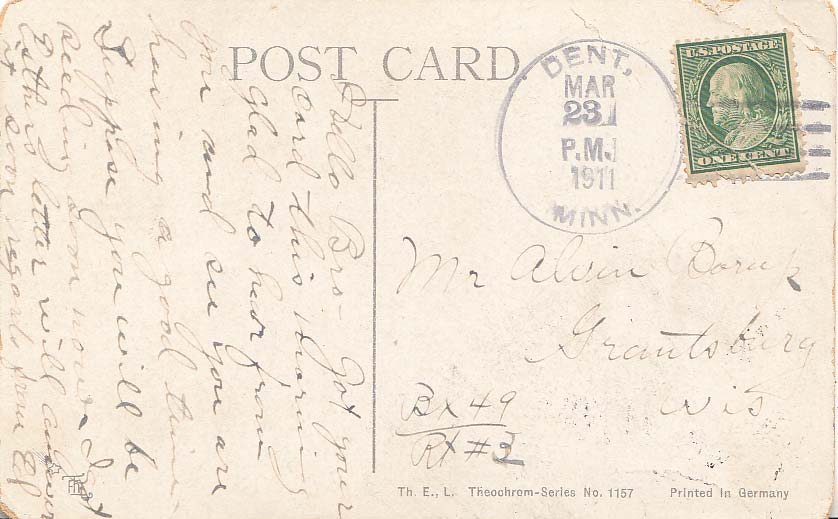 POST CARD
DENT,
MAR
23
P.M.
1911
MINN.
U.S. POSTAGE
ONE CENT
Mr Alvin Borup
Grantsburg
Wis
Bx 49
Rt #3
Hello Bro- Got your
card this morning
glad to hear from
you and see you are
having a good time.
Suppose you will be
seeding soon now. I got
Esther's letter will answer
it soon regards from
Th. E., L. Theochrom-Series No. 1157 Printed in Germany